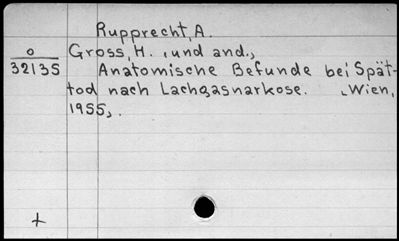 Rupprecht, A.
o Gross, H. , und and.,
32135 Anatomische Befunde bei Spät-
tod nach Lachgasnarkose. , Wien,
1955,.
+